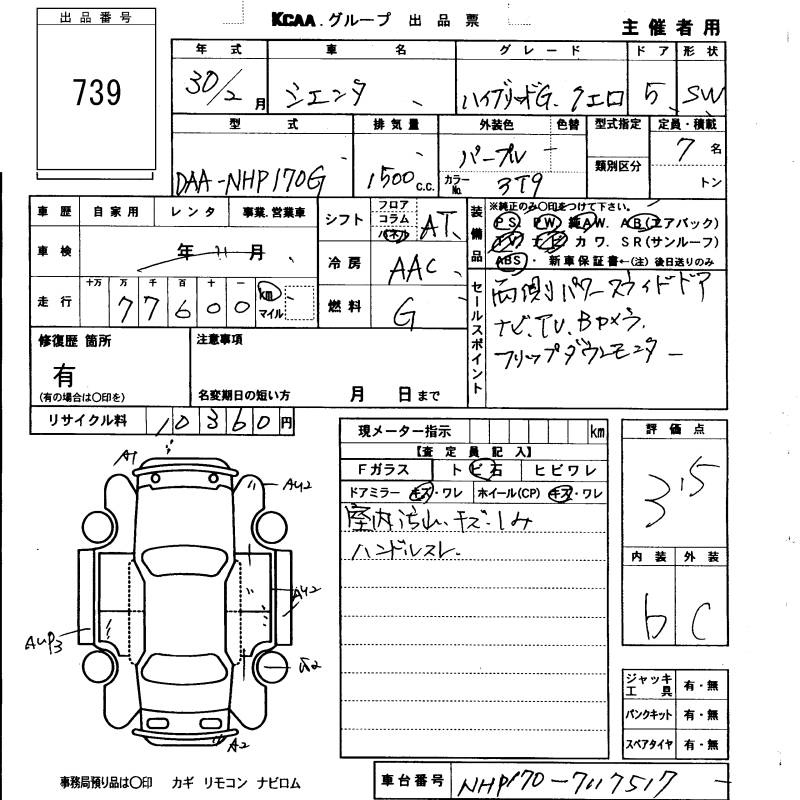 出品番号
739
KCAA.グループ 出品票
主催者用
年式 車名 グレード ドア 形状
30/2月 シエンタ ハイブリッドG. クエロ 5 SW
型式 排気量 外装色 色替 型式指定 定員・積載
DAA-NHP170G 1500c.c. パープル 類別区分 7名
カラーNo. 3T9 トン
車歴 自家用 レンタ 事業.営業車
車検 年 11月
走行 十万 万 千 百 十 一
77600 km マイル
シフト フロア コラム パネル AT
冷房 AAC
燃料 G
装備品
※純正のみ〇印をつけて下さい。
PS PW 純AW. AB(エアバック)
TV ナビ カワ. SR(サンルーフ)
ABS・ 新車保証書←(注) 後日送りのみ
セールスポイント
両側パワースライドドア
ナビ.TV.Bカメラ.
フリップダウンモニター
修復歴 箇所
有
(有の場合は〇印を)
注意事項
名変期日の短い方 月 日まで
リサイクル料 10360円
現メーター指示 km
【査定員記入】
Fガラス トビ石 ヒビワレ
ドアミラー キズ・ワレ ホイール(CP) キズ・ワレ
室内汚れ.キズ.シミ
ハンドルスレ.
評価点
3.5
内装 外装
b C
A1
AU2
AU2
AUP3
A2
ジャッキ工具 有・無
パンクキット 有・無
スペアタイヤ 有・無
事務局預り品は〇印 カギ リモコン ナビロム
車台番号 NHP170-7117517